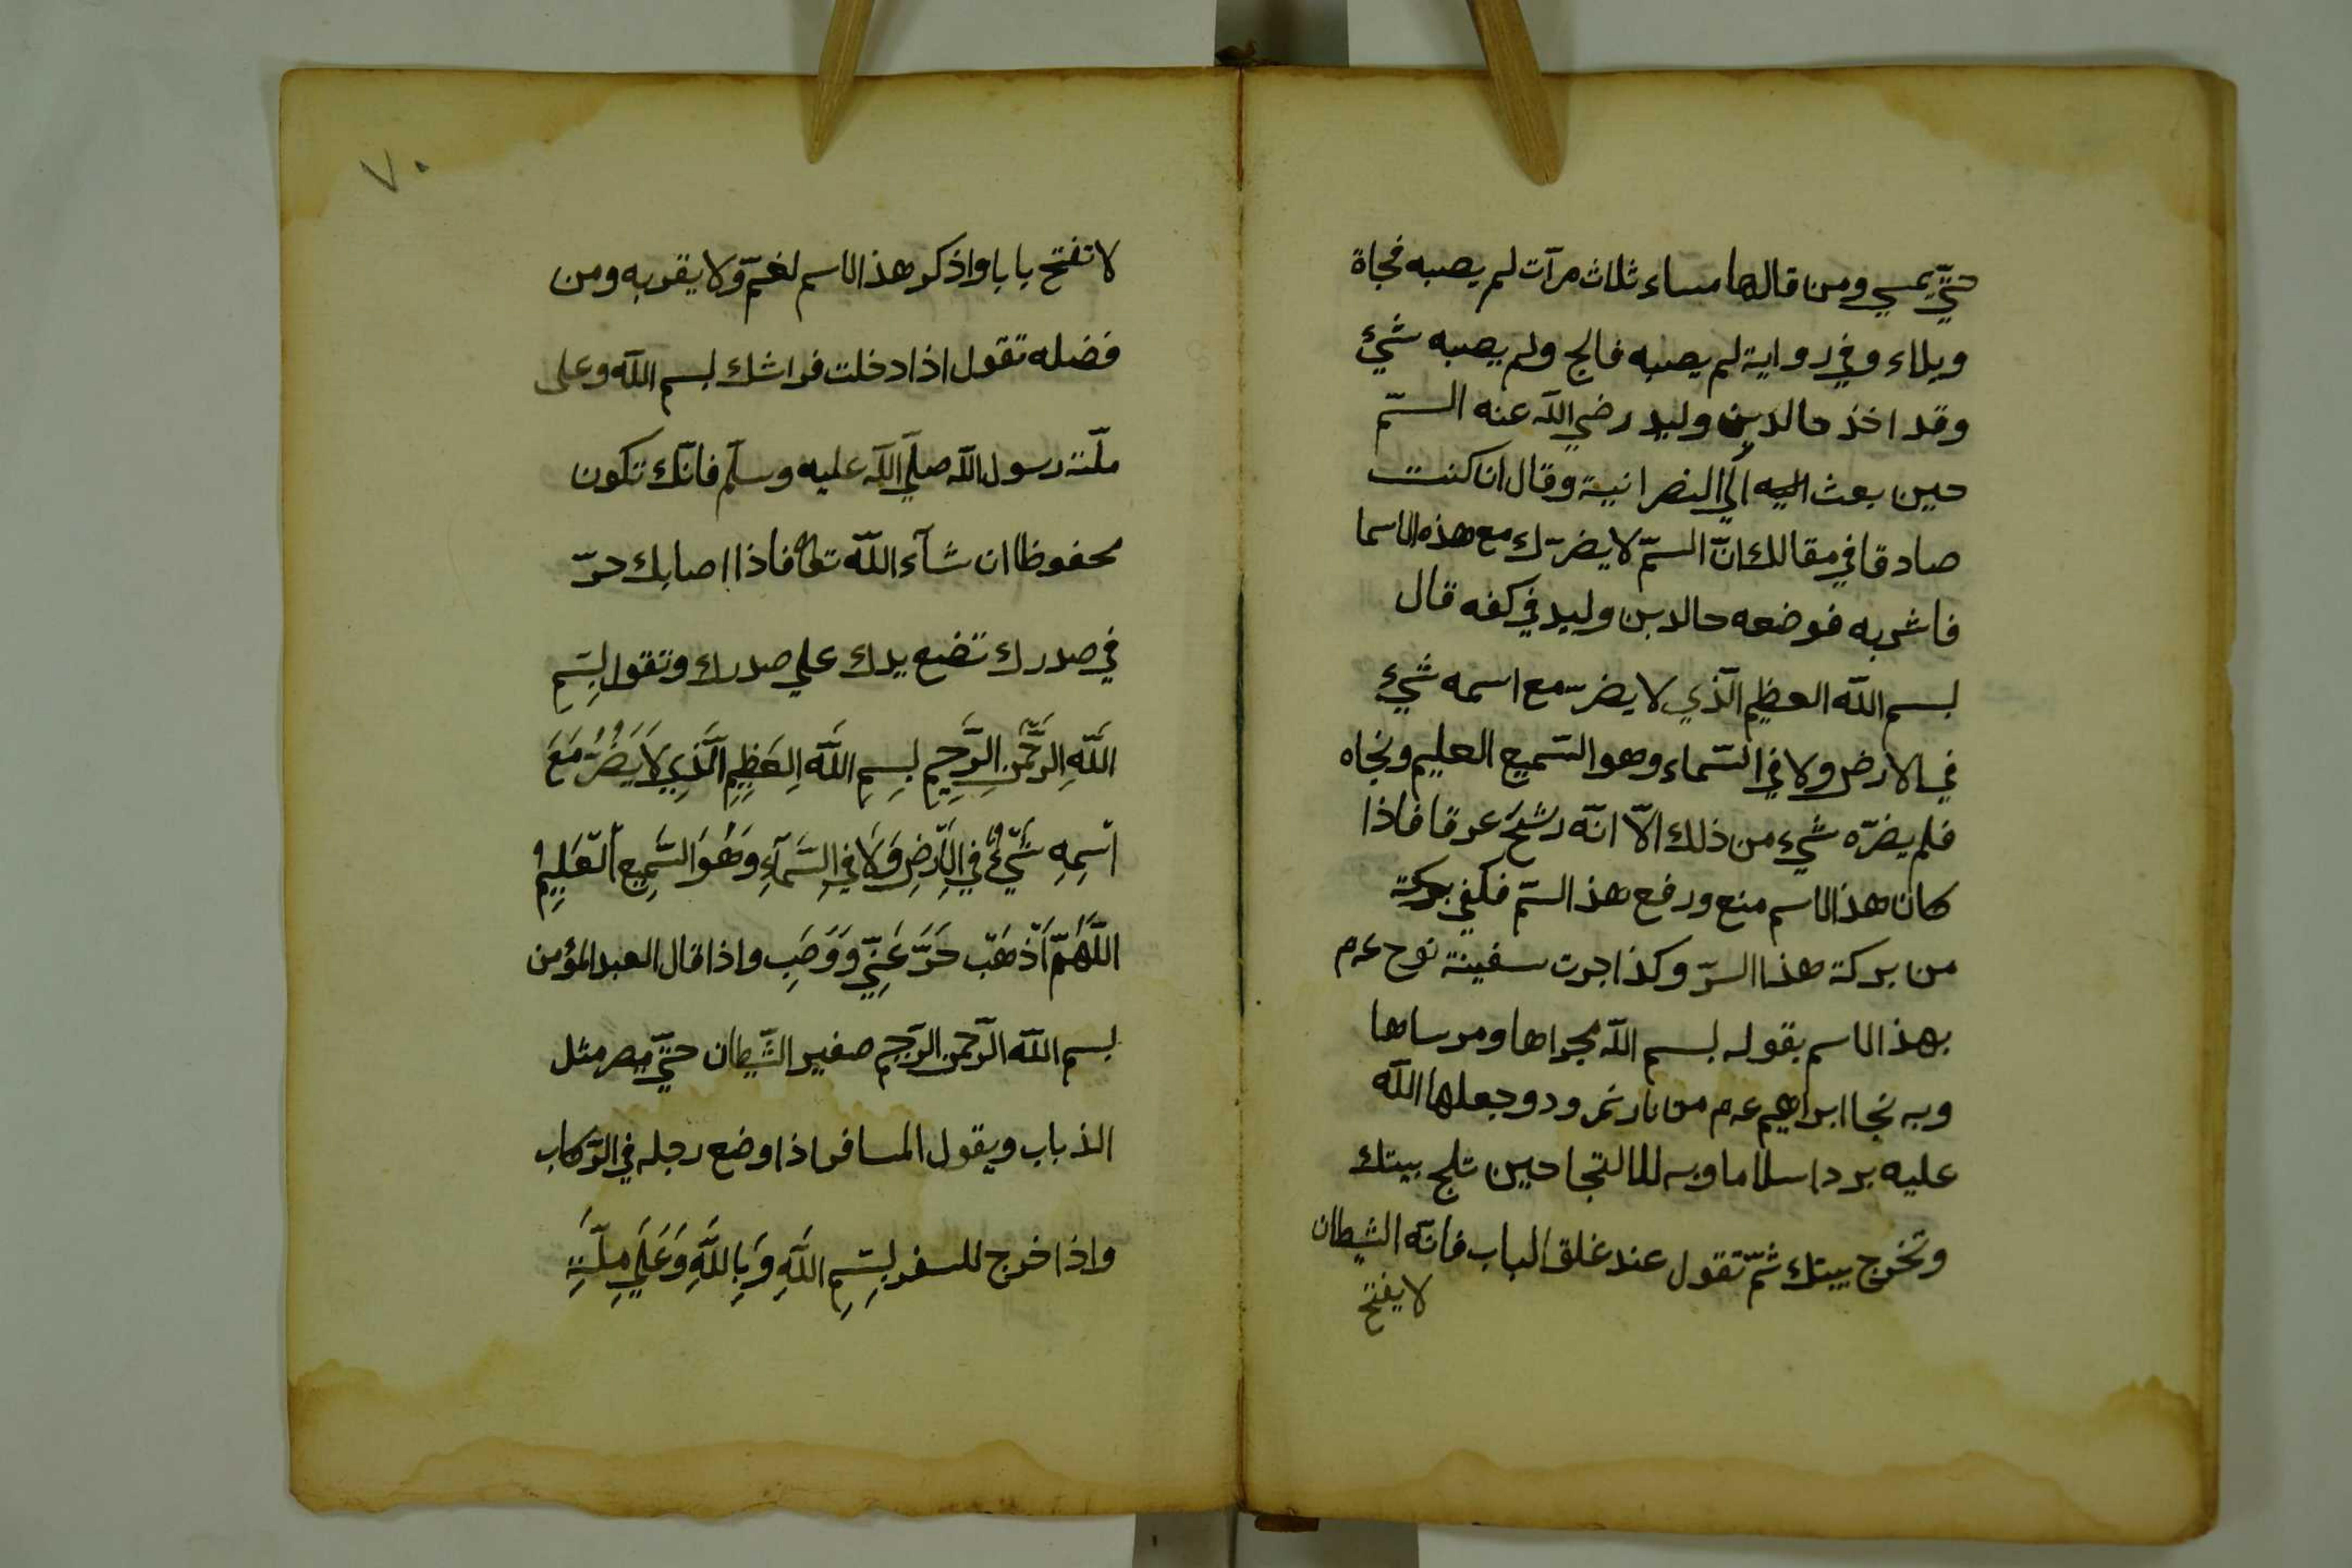 حتّي يمسي ومن قالها مساء ثلاث مرآت لم يصبه فجاة
وبلاء وفي رواية لم يصبه فالج ولم يصبه شيئ
وقد اخذ حالد بن وليد رضي الله عنه السمّ
حين بعث اليه الي النصرانية وقال ان كنت
صادقا في مقالك انّ السمّ لا يضرّك مع هذه الاسما
فاشربه فوضعه حالد بن وليد في كفه قال
بسم الله العظيم الّذي لا يضرّ مع اسمه شيئ
في الارض ولا في السّماء وهو السّميع العليم ونجاه
فلم يضرّه شيء من ذلك الّا انّه رشح عرقا فاذا
كان هذا الاسم منع ورفع هذ السّم فكفي بركة
من بركة هذا السرّ وكذا جرت سفينة نوح عم
بهذ الاسم بقوله بسم الله مجراها ومرساها
وبه نجا ابراهيم عم من نار نمرود وجعلها الله
عليه بردا سلاما وبه للالتجا حين تلج بيتك
وتخرج بيتك ثمّ تقول عند غلق الباب فانّه الشيطان
لا يفتح
٧٠
لا تفتح بابا واذكر هذ الاسم لغمّ ولا يقربه ومن
فضله تقول اذا دخلت فراشك بسم الله وعلى
ملّة رسول الله صلّي الله عليه وسلّم فانّك تكون
محفوظا ان شآء الله تعا فاذا اصابك حرّ
في صدرك تضع يدك علي صدرك وتقول بِسْمِ
اللَّهِ الرَّحْمَنِ الرَّحِيمِ بِسِمِ اللَّهِ العَظِيمِ الَّذِي لَا يَضُرُّ مَعَ
اسْمِهِ شَيْئٌ فِي الْأَرْضِ وَلَا فِي السَّمَآءِ وَهُوَ السَّمِيعُ الْعَلِيمُ
اللَّهُمَّ أَذْهَبْ حَرَّ عَنِّي وَوَصَبِ واذا قال العبد المؤمن
بسم الله الرّحمن الرّحيم صغير الشّيطان حتّي يصر مثل
الذباب ويقول المسافر اذا وضع رجله في الرّكاب
واذا خرج للسفر بِسْمِ اللَّهِ وَبِاللَّهِ وَعَلَي مِلَّةِ